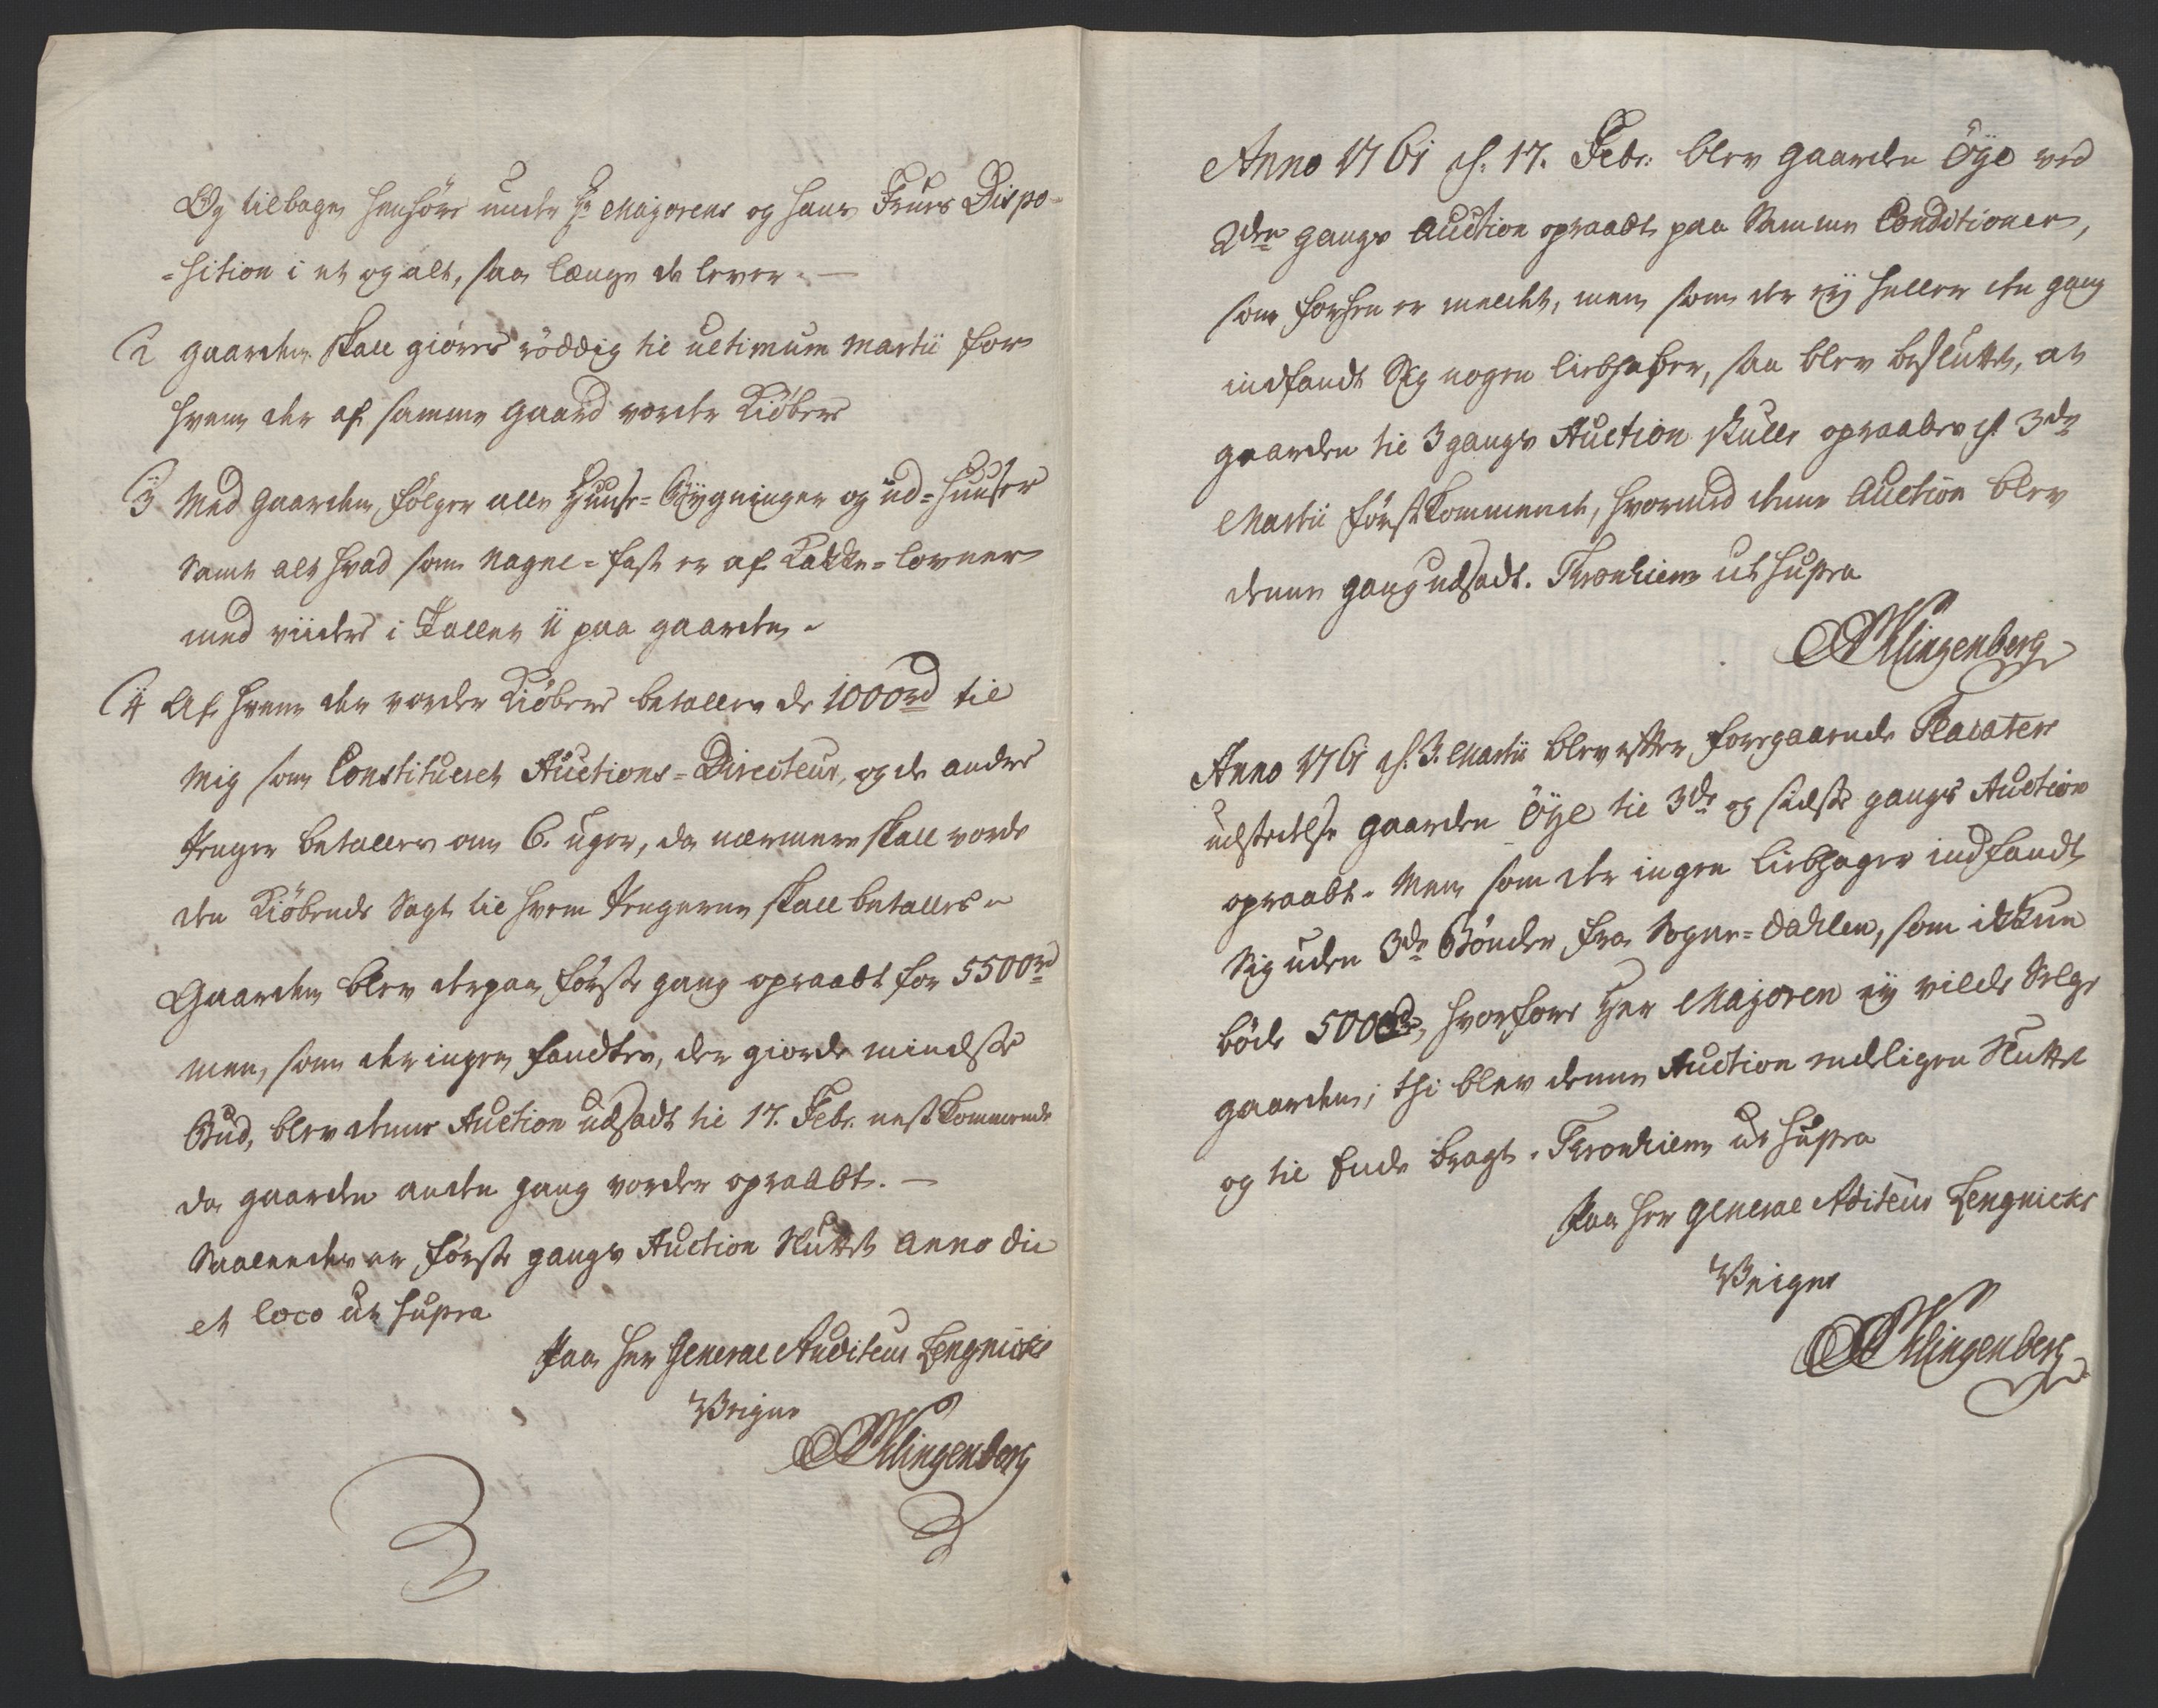 Og tilbage henhöre under Hr Majorens og hans Frues Dispo-
-sition i et og alt, saa længe de lever. —
2 gaarden skall giöres röddig til ultimum Martii for
hvem der af samme gaard vorder Kiöber
3 Med gaarden fölger alle Huuse-Bÿgninger og ud-huuser
samt alt hvad som Nagel-fast er af Kakke-lovner
med viider i Taller ii paa gaarden.
4 Af hvem der vorder Kiöber betalles de 1000 rd til
mig som Constitueret Auctions-Directeur, og de andre
Penger betalles om 6. uger, da nermere skall vorde
den Kiöbende Sagt til hvem Pengerne skall betalles.
Gaarden blev derpaa förste gang opraabt for 5500 rd
men, som der ingen fandtes, der giorde mindste
Bud, blev denne Auction udsadt til 17. Febr. nestkommende
da gaarden anden gang vorder opraabt. —
Saaledes er förste gangs Auction Sluttet Anno die
et loco ut supra
Paa Her General Auditeur Lengnicks
Veigne
Klingenberg
Anno 1761 d. 17. Febr: blev gaarden Öÿe ved
2den gangs Auction opraabt paa Samme Conditioner,
som forhen er meldt, men som der eÿ heller den gang
indfandt Sig nogen liebhaber, saa blev besluttet, at
gaarden til 3 gangs Auction skulle opraabes d. 3de
Martii förstkommende, hvormed denne Auction blev
denne gang udsadt. Tronhiem ut supra
Klingenberg
Anno 1761 d. 3. Martii blev efter foregaaende Placaters
udstedelse gaarden Öÿe til 3de og sidste gangs Auction
opraabt. Men som der ingen Liebhager indfandt
Sig uden 3de Bönder fra Sogne-Dahlen, som ikkun
böde 500 rd, hvorfore Her Majoren eÿ vilde Selge
gaarden; thi blev denne Auction endeligen Sluttet
og til Ende bragt. Tronhiem ut supra
Paa Her General Aditeur Lengnicks
Veigne
Klingenberg